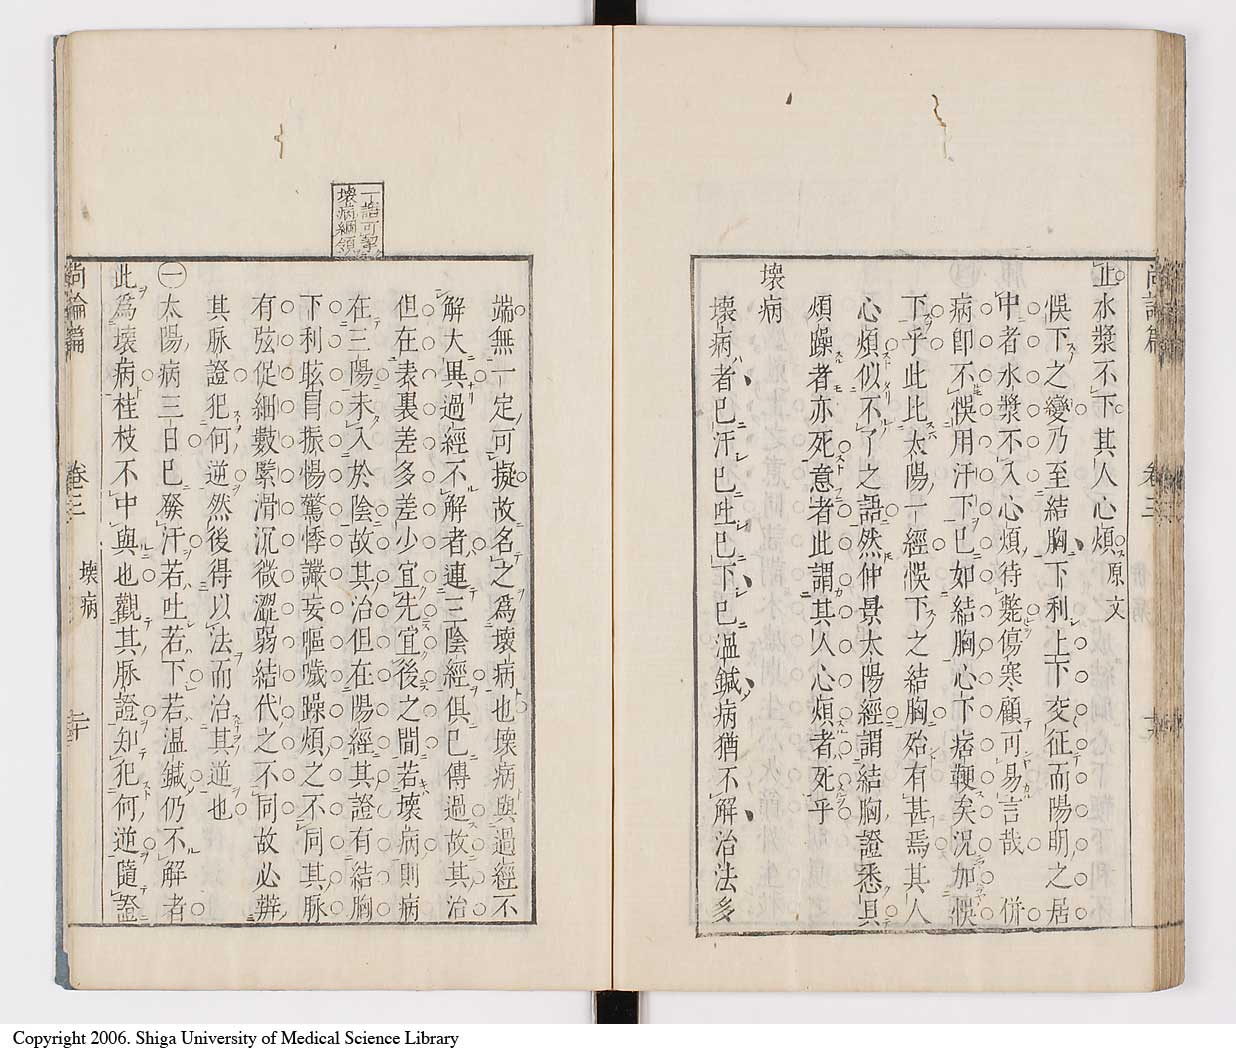 止水漿不下其人心煩原文
悞下之變乃至結胸下利上下交征而陽明之居
中者水漿不入心煩待斃傷寒顧可易言哉 併
病卽不悞用汗下已如結胸心下痞鞕矣況加悞
下乎此比太陽一經悞下之結胸殆有甚焉其人
心煩似不了之語然仲景太陽經謂結胸證悉具
煩躁者亦死意者此謂其人心煩者死乎
壊病
壊病者已汗已吐已下已溫鍼病猶不解治法多
尚論篇 卷三
一語可挈
壊病綱領
端無一定可擬故名之爲壊病也壊病與過經不
解大異過經不解者連三陰經俱已傳過故其治
但在表裏差多差少宜先宜後之間若壊病則病
在三陽未入於陰故其治但在陽經其證有結胸
下利眩冒振惕驚悸讝妄嘔噦躁煩之不同其脉
有弦促細數緊滑沉微澀弱結代之不同故必辨
其脉證犯何逆然後得以法而治其逆也
㊀太陽病三日已發汗若吐若下若溫鍼仍不解者
此爲壊病桂枝不中與也觀其脉證知犯何逆隨證
尚論篇 卷三 壊病 二十
Copyright 2006. Shiga University of Medical Science Library